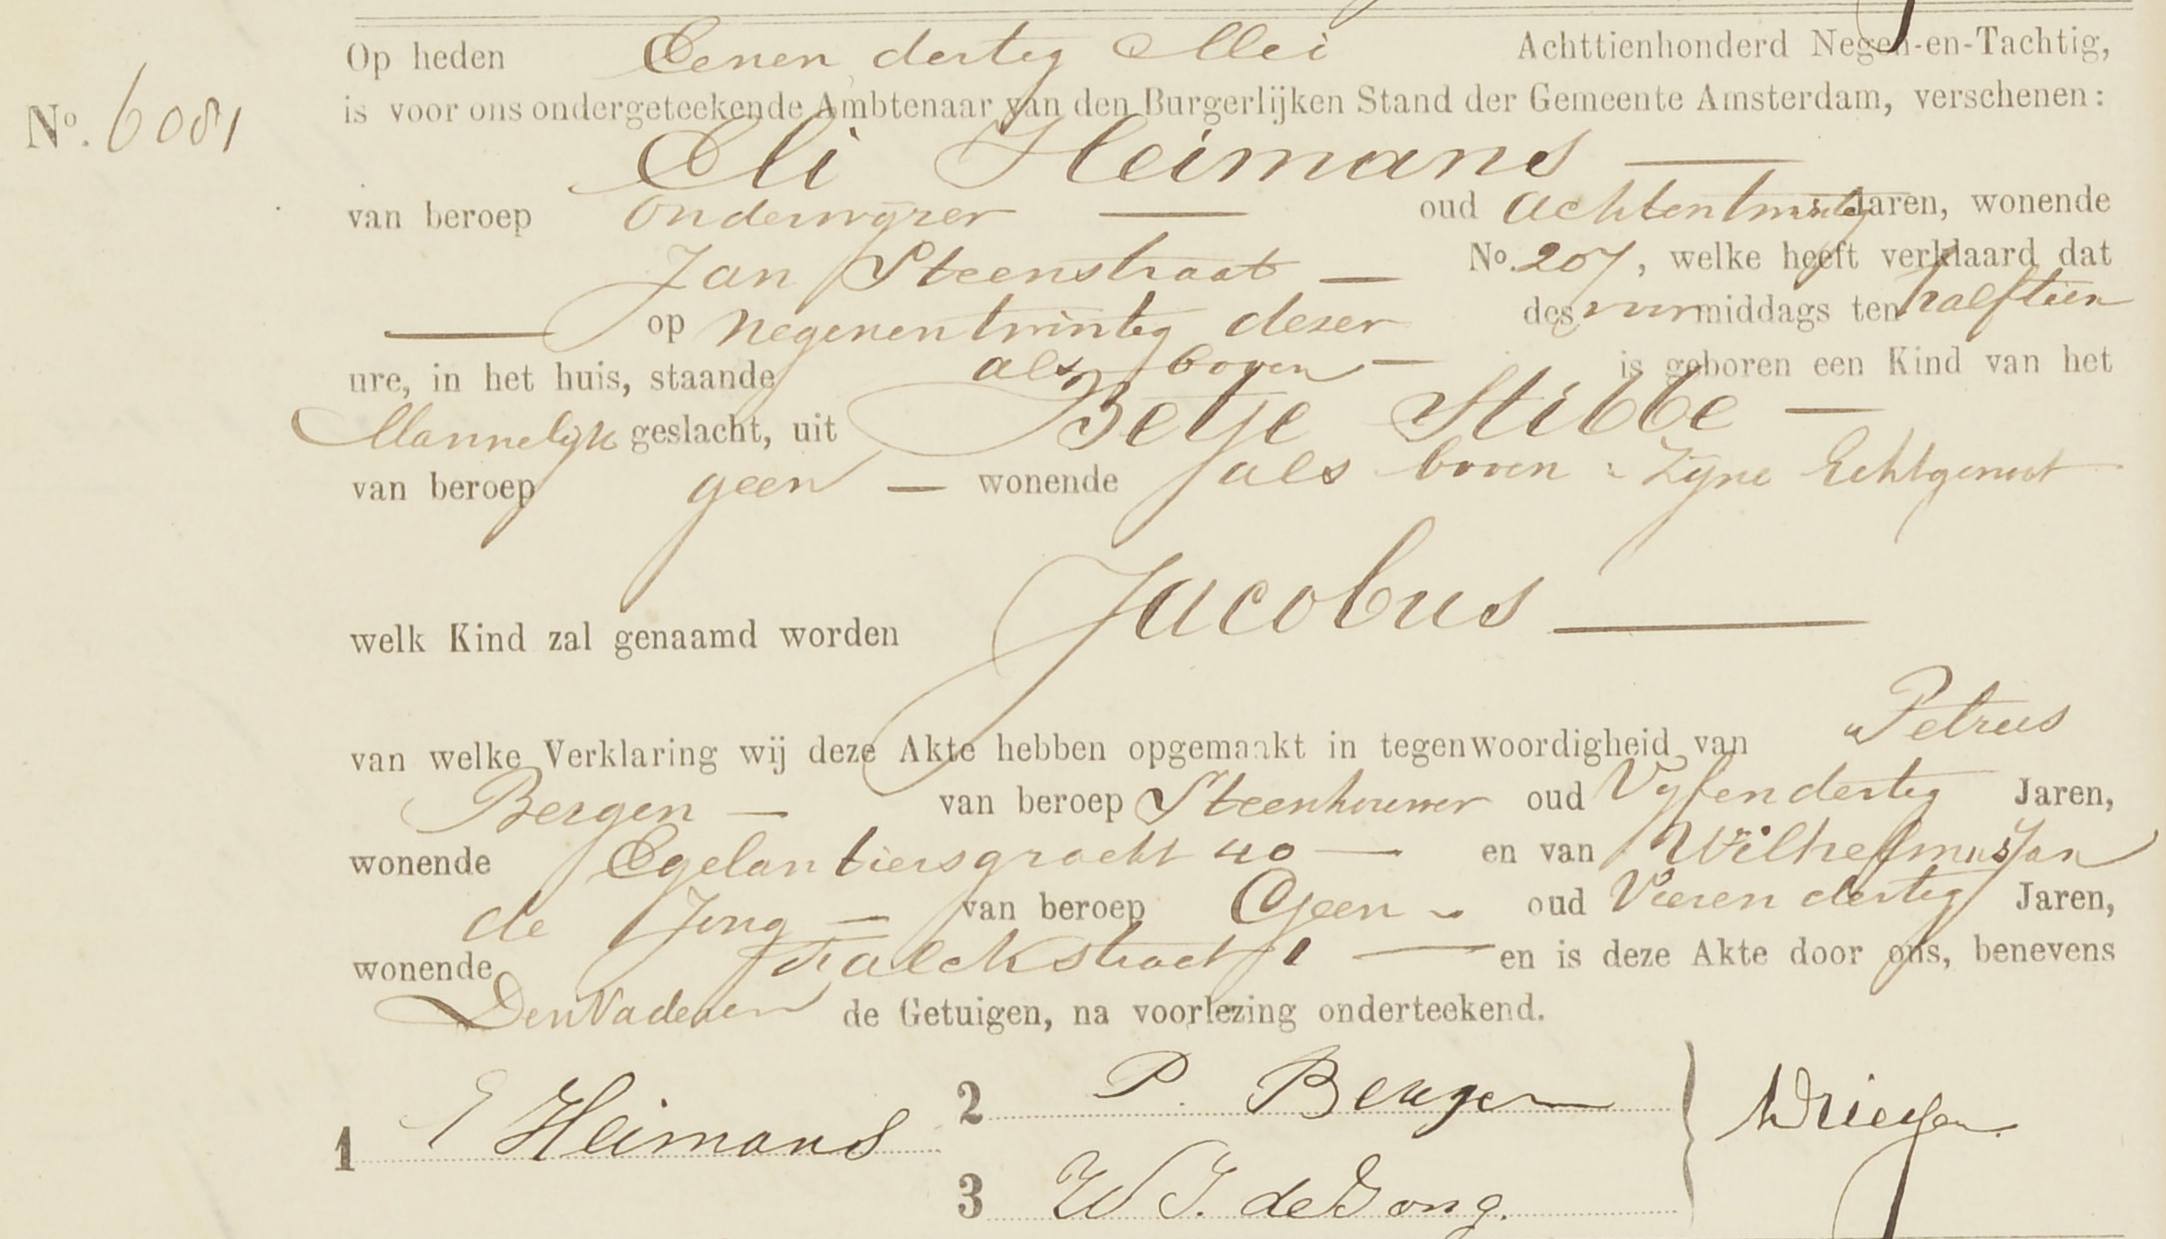 Op heden Eenen dertig Mei Achttienhonderd Negen-en-Tachtig,
No. 6081
is voor ons ondergeteekende Ambtenaar van den Burgerlijken Stand der Gemeente Amsterdam, verschenen:
Eli Heimans
van beroep Onderwijzer oud achtentwintig Jaren, wonende
Jan Steenstraat No. 207, welke heeft verklaard dat
op negenentwintig dezer des voormiddags ten half tien
ure, in het huis, staande als boven is geboren een Kind van het
Mannelijk geslacht, uit Betje Stibbe
van beroep geen wonende als boven zijne Echtgenoot
welk Kind zal genaamd worden Jacobus
van welke Verklaring wij deze Akte hebben opgemaakt in tegenwoordigheid van Petrus
Bergen van beroep Steenhouwer oud Vijfendertig Jaren,
wonende Egelantiersgracht 40 en van Wilhelmus Jan
de Jong van beroep Geen oud Vierendertig Jaren,
wonende Falckstraat 1 en is deze Akte door ons, benevens
Den Vader en de Getuigen, na voorlezing onderteekend.
1 E Heimans 2 P. Bergen
3 W J. de Jong.